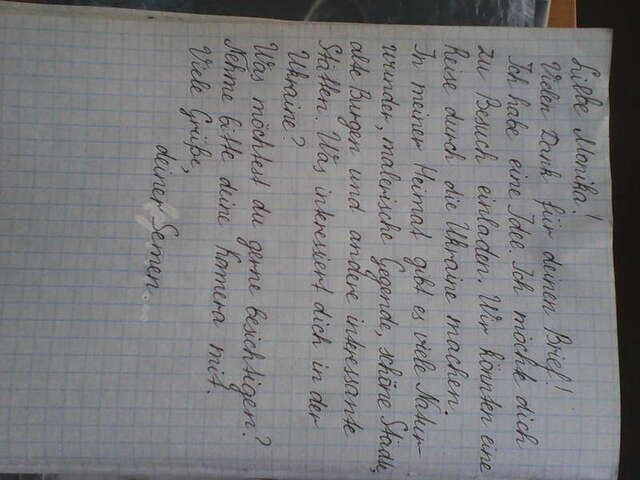 Liebe Monika!
Vielen Dank für deinen Brief!
Ich habe eine Idee. Ich möchte dich
zu Besuch einladen. Wir könnten eine
Reise durch die Ukraine machen.
In meiner Heimat gibt es viele Natur
wunder, malerische Gegende, schöne Stadte,
alte Burgen und andere interessante
Stätten. Was interesiert dich in der
Ukraine?
Was möchtest du gerne besichtigen?
Nehme bitte deine Kamera mit.
Viele Grüße,
deiner Semen